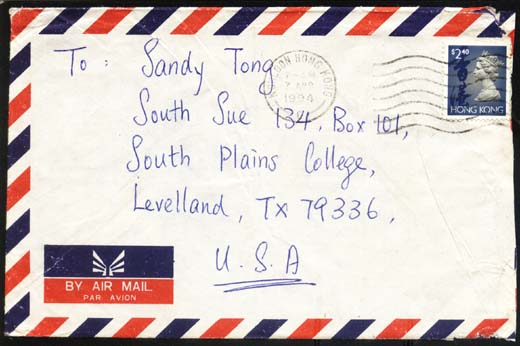 To : Sandy Tong
South Sue 134, Box 101,
South Plains College,
Levelland, Tx 79336,
U.S.A
HONG KONG
1994
$2.40
HONG KONG
BY AIR MAIL
PAR AVION